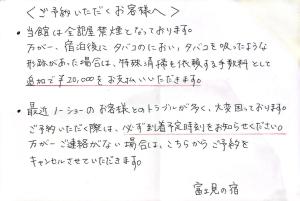 ＜ご予約いただくお客様へ＞
・当館は全部屋禁煙となっております。
万が一、宿泊後にタバコのにおい、タバコを吸ったような
形跡があった場合は、特殊清掃を依頼する手数料として
追加で￥20,000をお支払いいただきます。
・最近ノーショーのお客様とのトラブルが多く、大変困っております。
ご予約いただく際は、必ず到着予定時刻をお知らせください。
万が一ご連絡がない場合は、こちらからご予約を
キャンセルさせていただきます。
富士見の宿